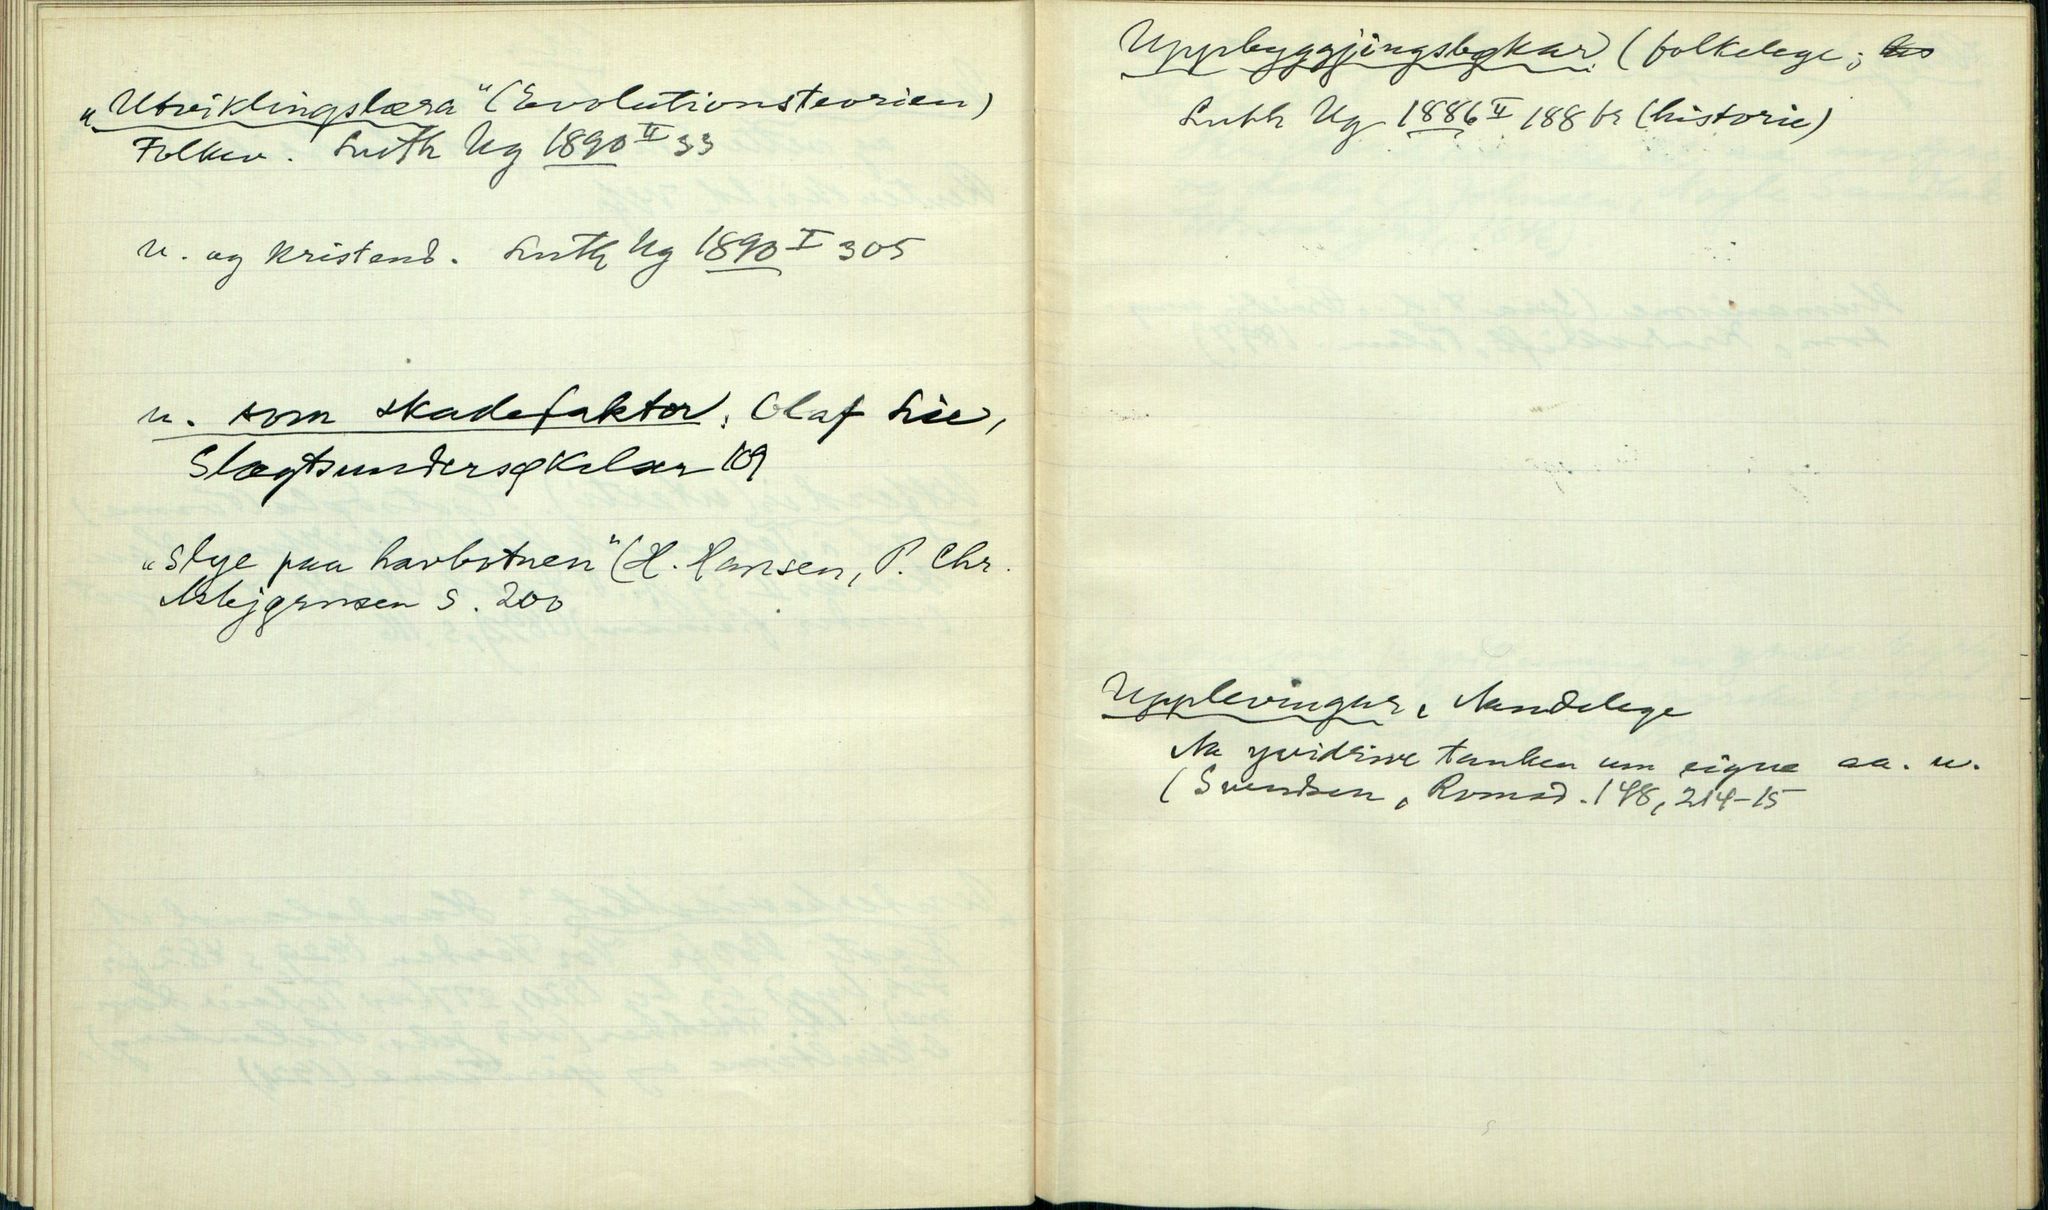 „Utviklingslæra“ (Evolutionsteorien)
Folkev. Luth Ug 1890 II 33
u. og Kristend. Luth Ug 1890 I 305
u. som skadefaktor: Olaf Lie,
Slægtsundersøkelser 109
„Slye paa havbotnen“ (H. Hansen, P. Chr.
Asbjørnsen s. 200
Uppbyggjingsbøkar (folkelege;
Luth Ug 1886 II 188 fr (historie)
Upplevingar, Aandelege
Aa yvidrive tanken um eigne aa. u.
(Svendsen, Romsd. 148, 214-15